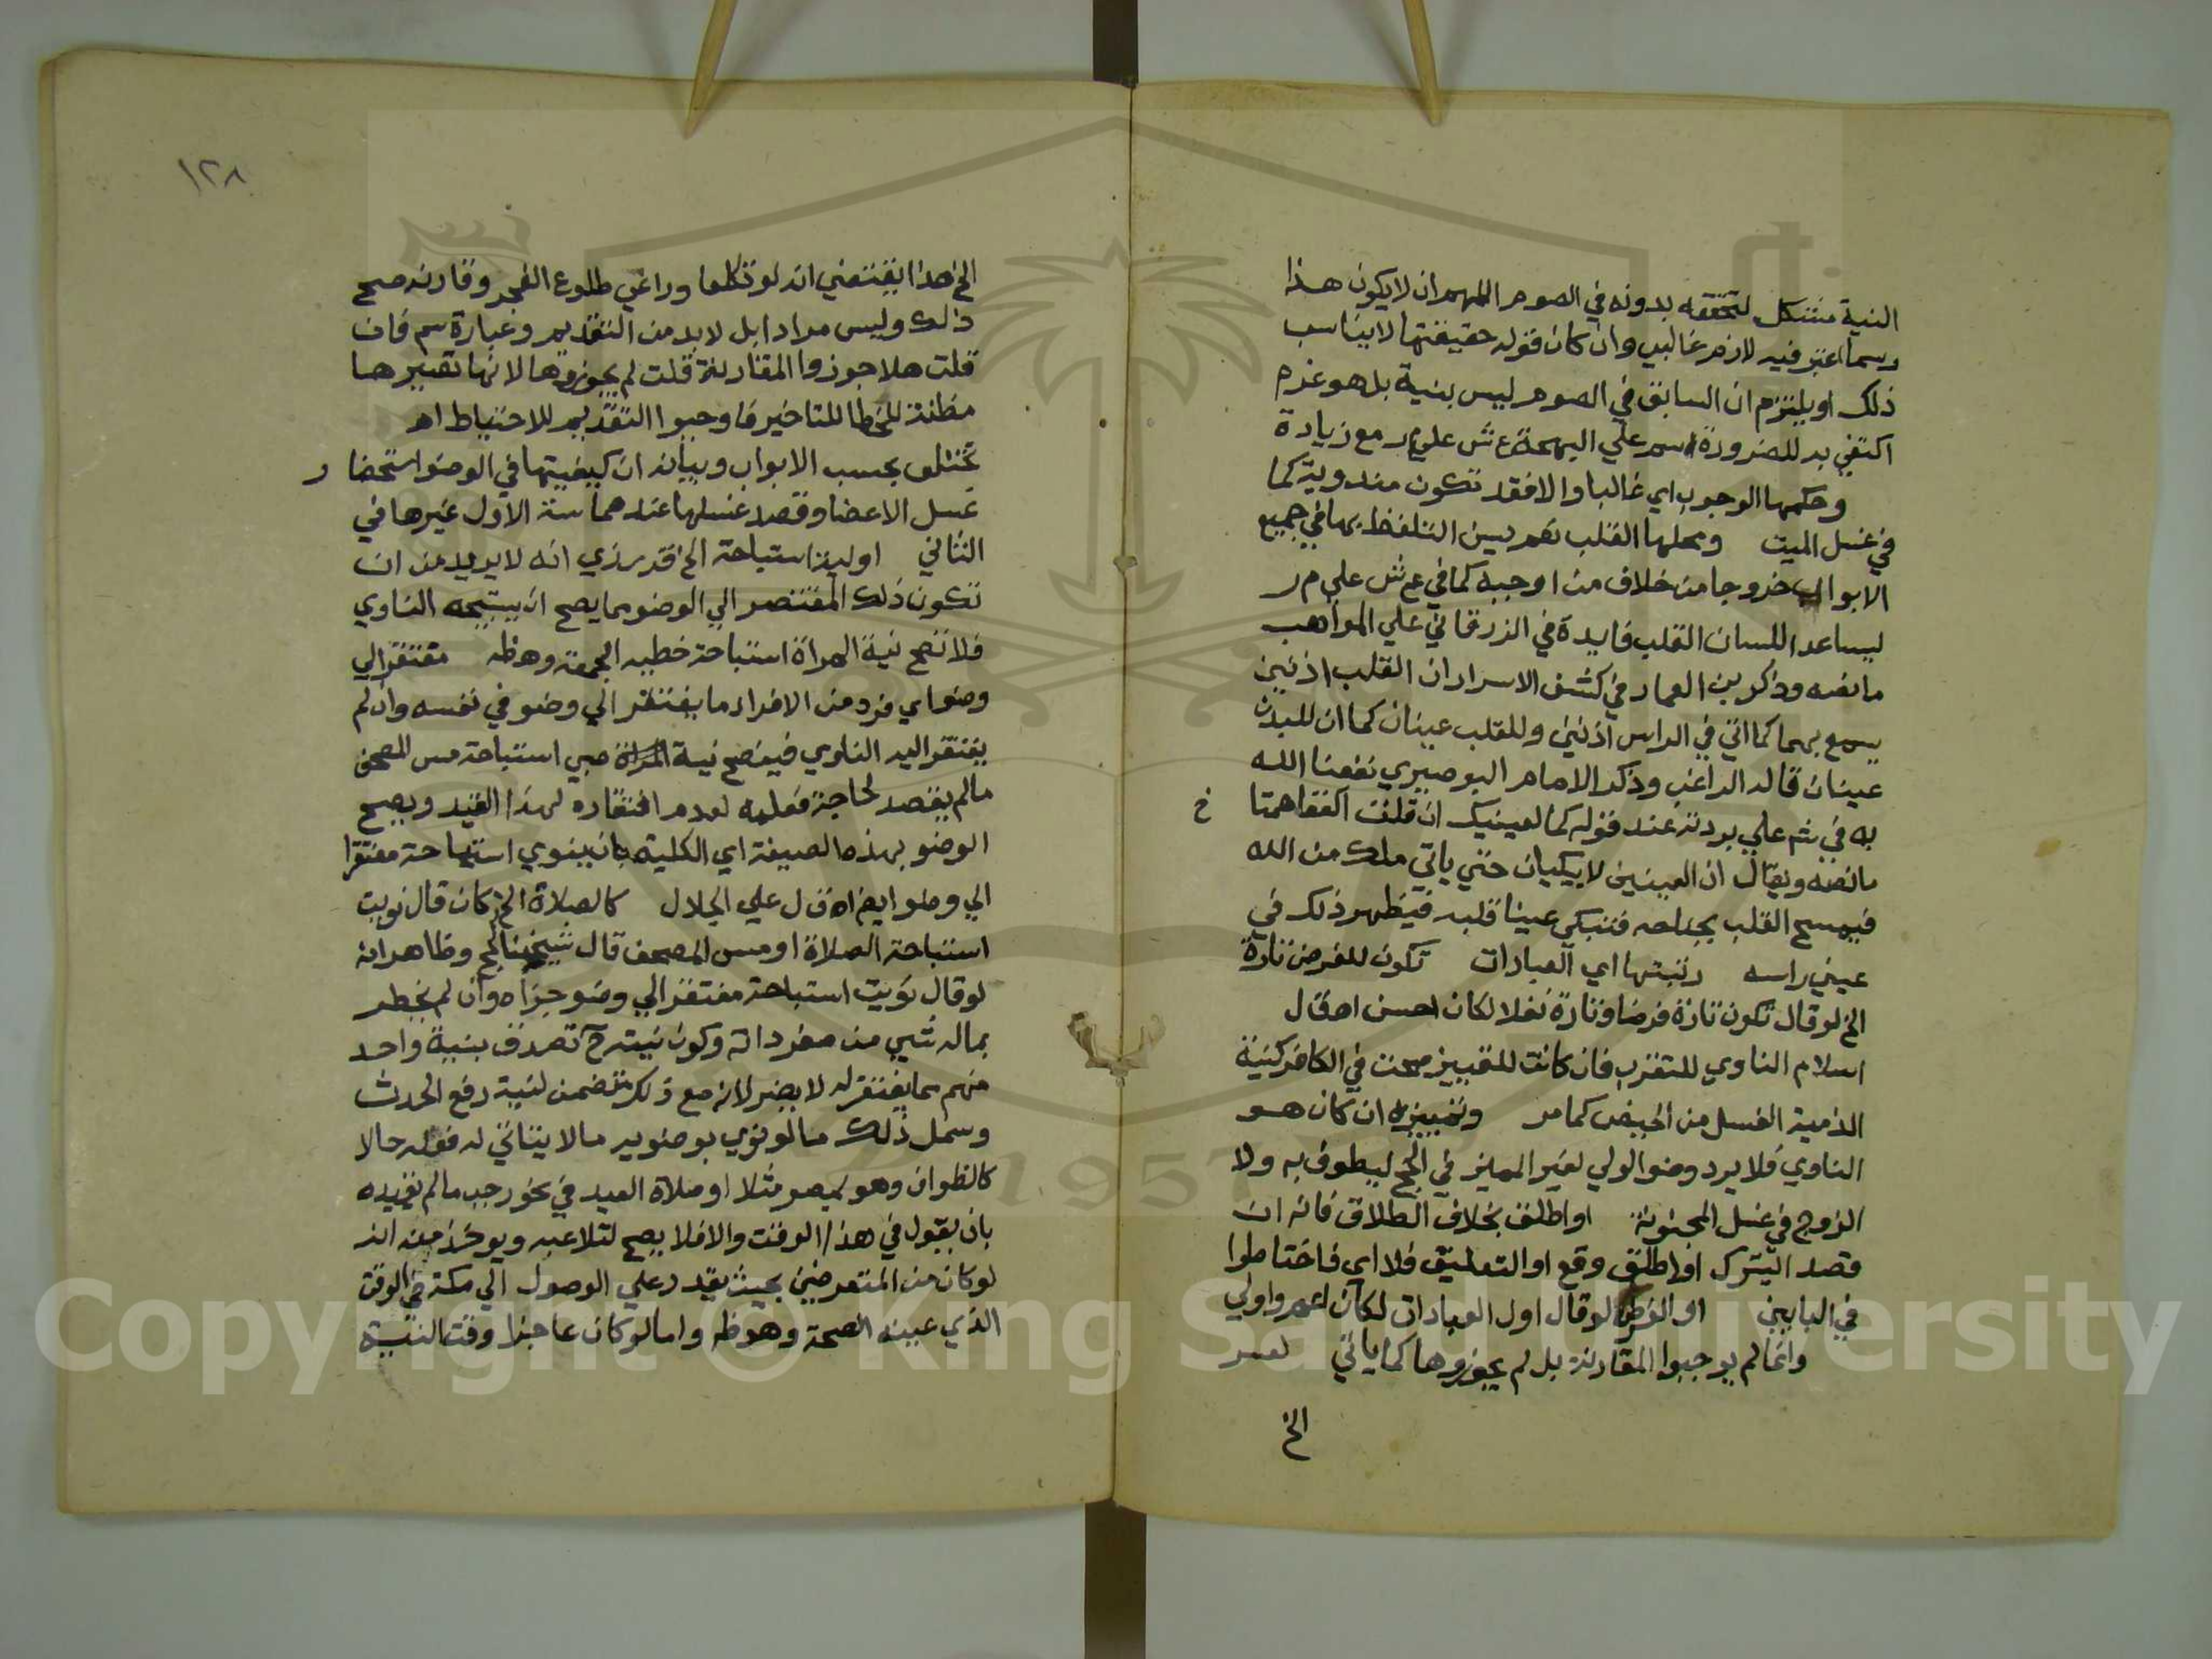 النية مشكل لتحققه بدونه في الصوم اللهم ان لا يكون هذا
رسما اعتبر فيه لازم غالبي وان كان قوله حقيقتها لا يناسب
ذلك او يلتزم ان السابق في الصوم ليس بنية بل هو عزم
اكتفي به للضرورة اسم علي البهجة ع ش علي م ر مع زيادة
وحكمها الوجوب اي غالبا والا فقد تكون مندوبة كما
في غسل الميت ومحلها القلب نعم يسن التلفظ بها في جميع
الابواب خروجا من خلاف من اوجبه كما في ع ش علي م ر
ليساعد اللسان القلب فايدة في الزرقاني علي المواهب
ما نصه وذكر بن العماد في كشف الاسرار ان للقلب اذنين
يسمع بهما كما ان في الراس اذنين وللقلب عينان كما ان للبدن
عينان قاله الراغب وذكر الامام البوصيري نفعنا الله
به في شم علي بردته عند قوله فما لعينيك ان قلت اكففا همتا خ
ما نصه ويقال ان العينين لا يبكيان حتي ياتي ملك من الله
فيمسح القلب بجناحه فتبكي عينا قلبه فيظهر ذلك في
عيني راسه رتبتها اي العبادات تكون للفرض تارة
الخ لو قال تكون تارة فرضا وتارة نفلا لكان احسن اه ق ل
اسلام الناوي للتقرب فان كانت للتمييز صحت في الكافر كنية
الذمية الغسل من الحيض كما مر وتمييزه ان كان هو
الناوي فلا يرد وضو الولي لغير المميز في الحج ليطوف به ولا
الزوج في غسل المجنونة او اطلق بخلاف الطلاق فانه ان
قصد التبرك او اطلق وقع او التعليق فلا اي فاحتاطوا
في البابين او الفرض لو قال اول العبادات لكان اعم واولي
وانما لم يوجبوا المقارنة بل لم يجوزوها كما ياتي لعسر
الخ
١٢٨
الخ هذا يقتضي انه لو تكلفها وراعي طلوع الفجر وقارنه صح
ذلك وليس مرادا بل لا بد من التقديم وعبارة سم فان
قلت هلا جوزوا المقارنة قلت لم يجوزوها لانها تقصيرها
مظنة للخطا للتاخير فاوجبوا التقديم للاحتياط اه
تختلف بحسب الابواب وبيانه ان كيفيتها في الوضو استحضار
غسل الاعضا وقصد غسلها عند مماسة الاول غيرها في
الثاني او لينة استباحة الخ قد رزي انه لا بد من ان
تكون ذلك المفتقر الي الوضو مما يصح ان يستبيحه الناوي
فلا تصح نية المراة استباحة خطبة الجمعة وهو ظه مفتقر الي
وضو اي فرد من الافراد ما يفتقر الي وضو في نفسه وان لم
يفتقر اليه الناوي فيصح نية صبي استباحة مس المصحف
مالم يقصد لحاجة تعليمه لعدم افتقاره لهذا القيد ويصح
الوضو بهذه الصيغة اي الكلية بان ينوي استباحة مفتقرا
الي وضو ايضا اه ق ل علي الجلال كالصلاة الخ كان قال نويت
استباحة الصلاة او مس المصحف قال شيخنا حج وظاهر انه
لو قال نويت استباحة مفتقر الي وضو جزاه وان لم يخطر
بباله شيي من مفرداته وكون نيته ح تصدق بنية واحد
منهم مما يفتقر له لا يضر لانه مع ذلك متضمن لنية رفع الحدث
وشمل ذلك ما لو نوي بوضويه ما لا يتاتي له فعله حالا
كالطواف وهو بمصر مثلا او صلاة العيد في نحو رجب مالم يقيده
بان يقول في هذا الوقت والا فلا يصح لتلاعبه ويوخذ منه انه
لو كان من المتصرفين بحيث يقدر علي الوصول الي مكة في الوقت
الذي عينه الصحة وهو ظه واما لو كان عاجزا وقت النية
Copyright © King Saud University
1957